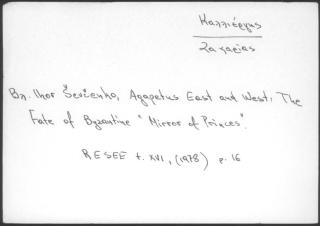 Καλλιέργης
Ζαχαρίας
Βλ. Ihor Ševčenko, Agapetus East and West: The
Fate of Byzantine "Mirror of Princes".
RESEE t. XVI, (1978) p. 16